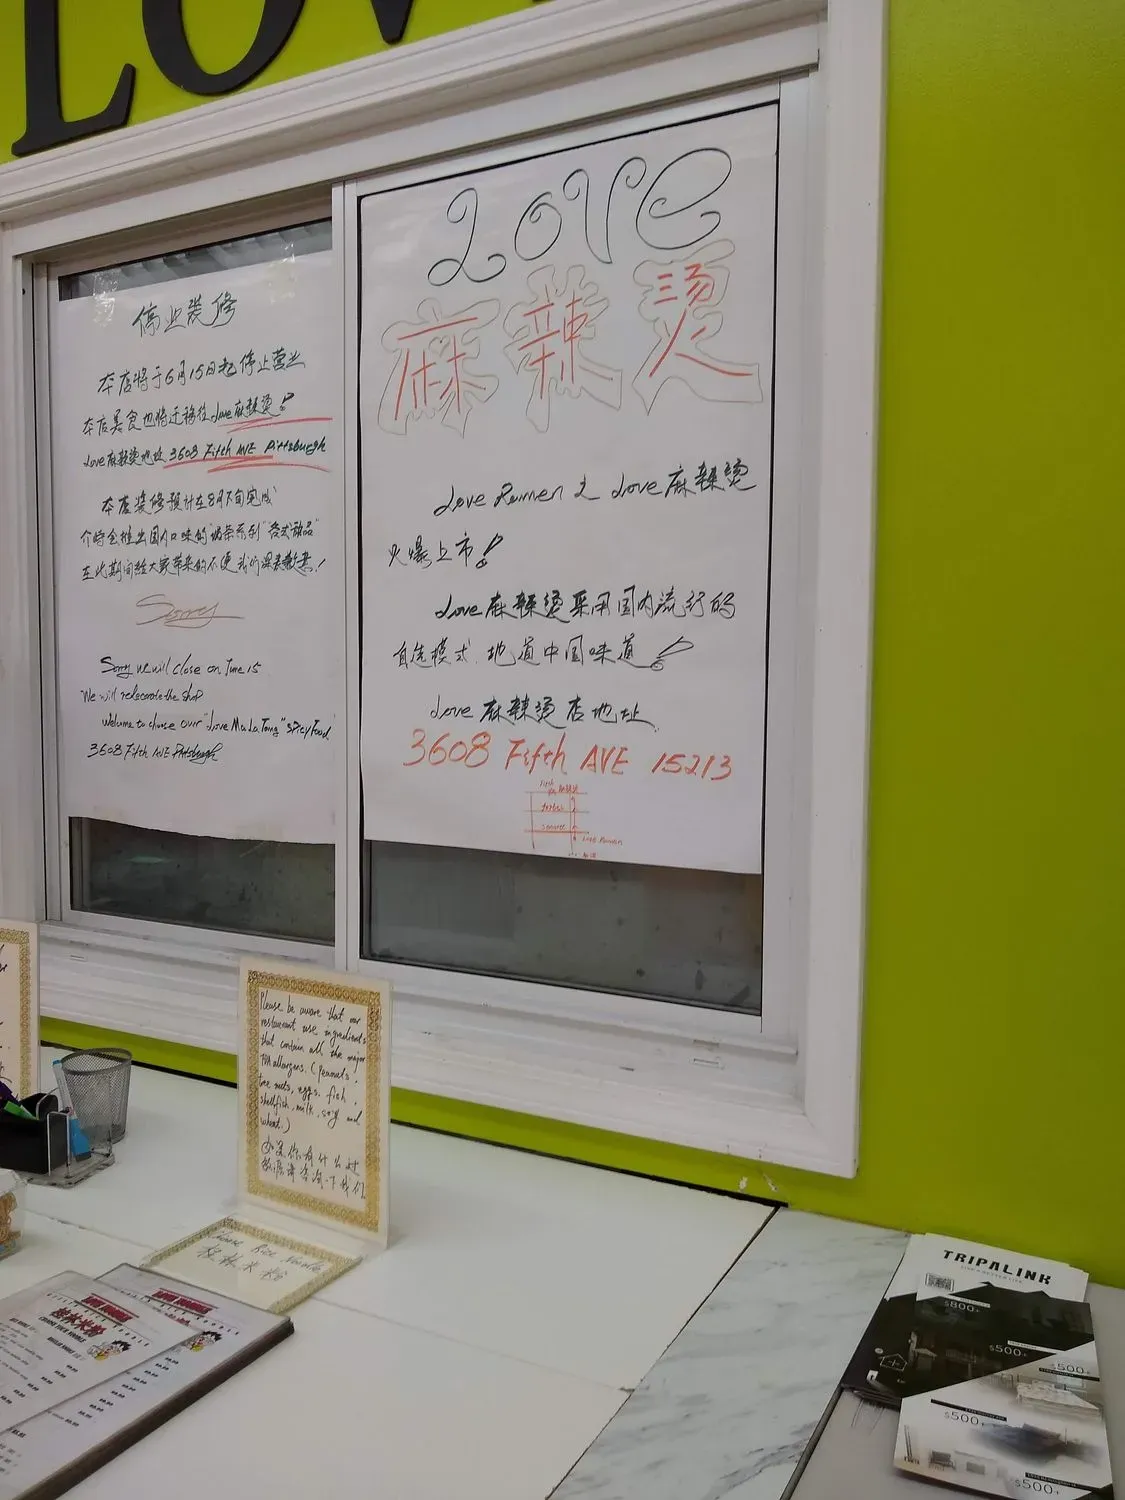 LOV
停业装修
本店将于6月15日起停止营业
本店美食也将迁移往Love麻辣烫!
Love麻辣烫地址 3608 Fifth AVE Pittsburgh
本店装修预计在8月下旬完成
介时会推出国人口味的"汤条系列" "各式甜品"
在此期间给大家带来的不便 我们深表歉意!
Sorry
Sorry we will close on June 15
We will redecorate the shop
Welcome to choose our "Love Mala Tang" spicy Food
3608 Fifth AVE Pittsburgh
Love
麻辣烫
Love Ramen 之 Love麻辣烫
火爆上市!
Love麻辣烫采用国内流行的
自选模式 地道中国味道!
Love麻辣烫店地址
3608 Fifth AVE 15213
Forbes
Please be aware that our
restaurant use ingredients
that contain all the major
FDA allergens. (peanuts,
tree nuts, eggs. fish,
shellfish, milk, soy and
wheat.)
如果你有什么过
敏源请咨询一下我们
Rice Noodle
桂林米粉
桂林米粉
CHOOSE YOUR NOODLE
TRIPALINK
$800+
$500+
$500+
$500+
$500+